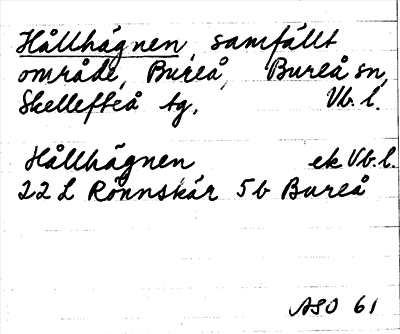 Hållhägnen, samfällt
område, Bureå, Bureå sn,
Skellefteå tg, Vb. l.
Hållhägnen ek Vb. l.
22 L Rönnskär 5b Bureå
ASO 61